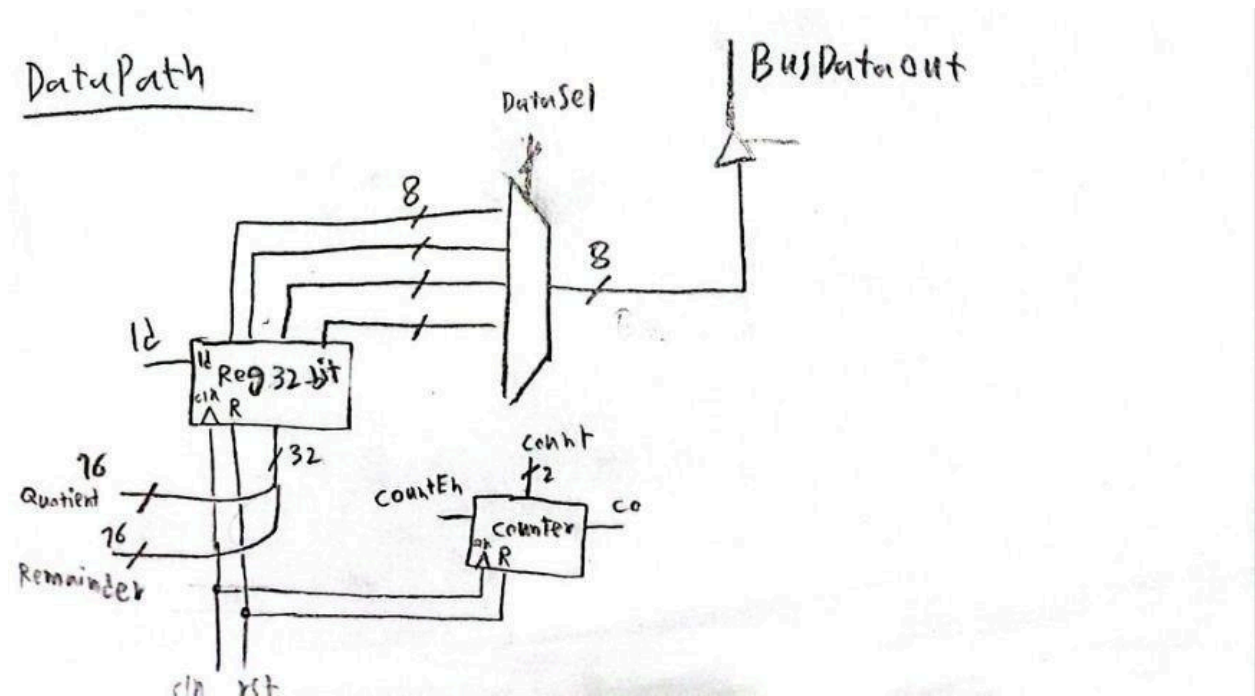 DataPath
BusDataOut
DataSel
8
8
ld
ld
Reg 32-bit
clk
R
32
16
Quotient
16
Remainder
count
2
CountEn
co
counter
clk
R
clk rst